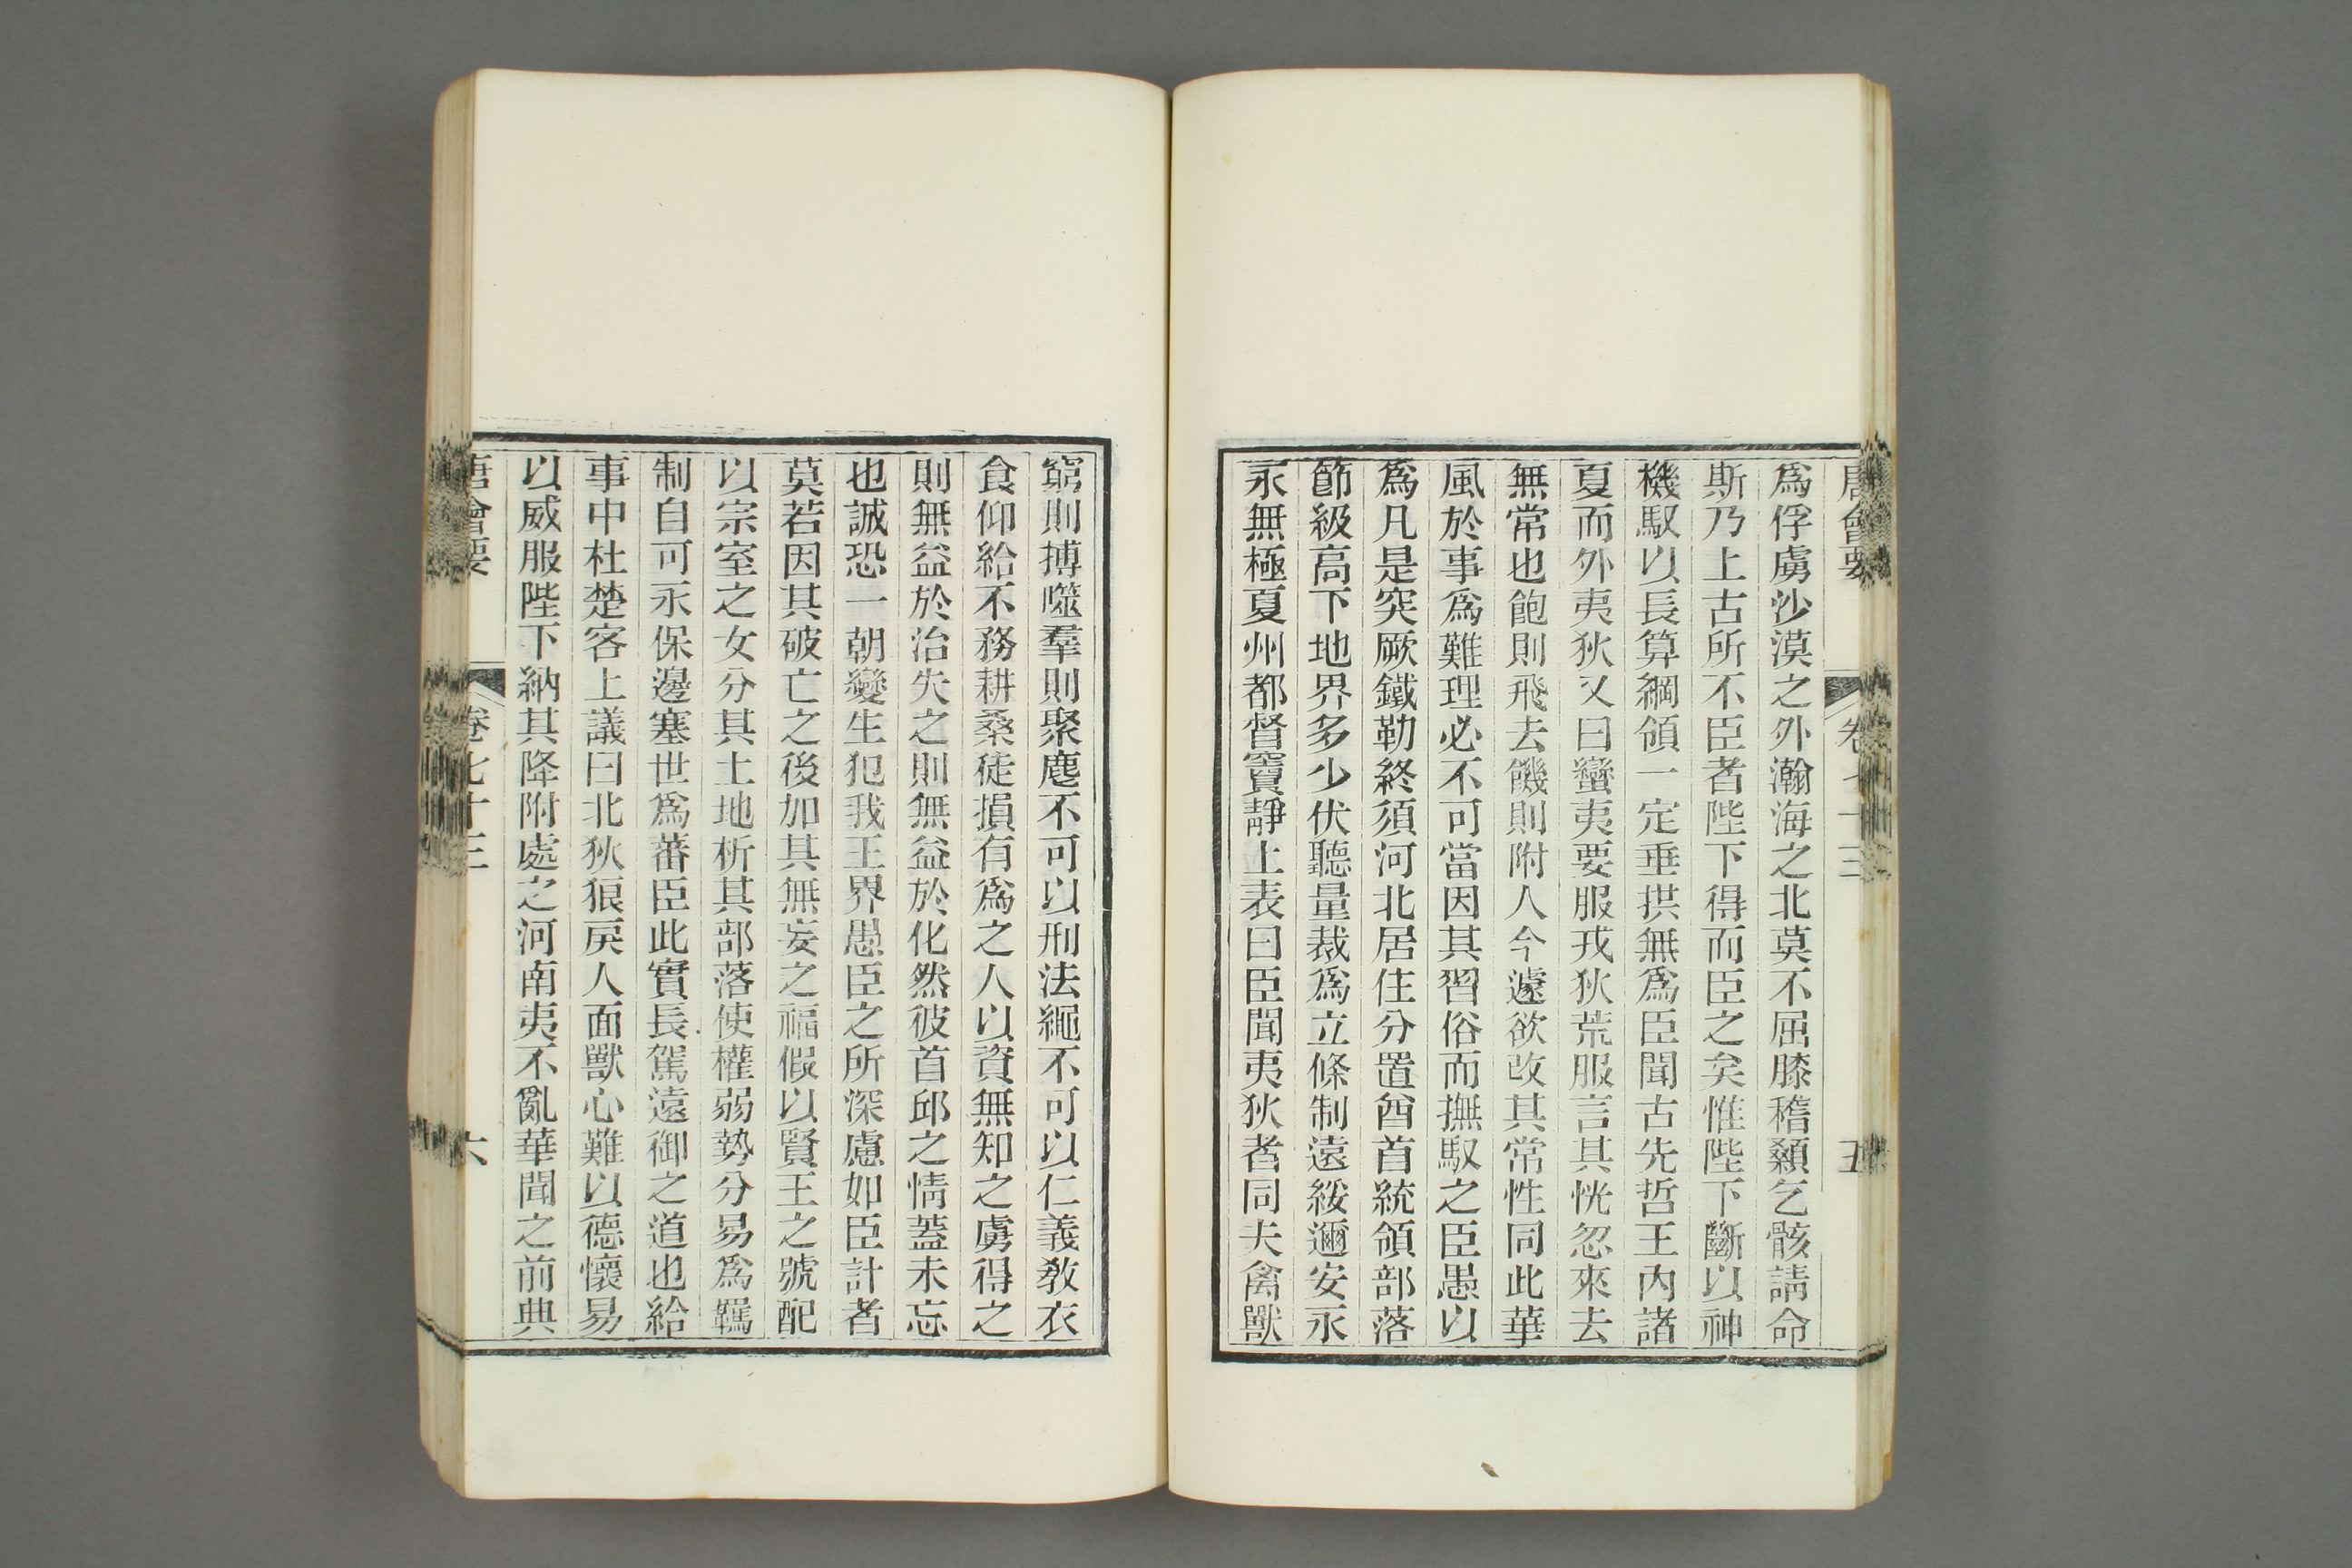 唐會要 卷七十三 五
爲俘虜沙漠之外瀚海之北莫不屈膝稽顙乞骸請命
斯乃上古所不臣者陛下得而臣之矣惟陛下斷以神
機馭以長算綱領一定垂拱無爲臣聞古先哲王內諸
夏而外夷狄又曰蠻夷要服戎狄荒服言其恍忽來去
無常也飽則飛去饑則附人今遽欲改其常性同此華
風於事爲難理必不可當因其習俗而撫馭之臣愚以
爲凡是突厥鐵勒終須河北居住分置酋首統領部落
節級高下地界多少伏聽量裁爲立條制遠綏邇安永
永無極夏州都督竇靜上表曰臣聞夷狄者同夫禽獸
窮則搏噬羣則聚麀不可以刑法繩不可以仁義敎衣
食仰給不務耕桑徒損有爲之人以資無知之虜得之
則無益於治失之則無益於化然彼首邱之情蓋未忘
也誠恐一朝變生犯我王界愚臣之所深慮如臣計者
莫若因其破亡之後加其無妄之福假以賢王之號配
以宗室之女分其土地析其部落使權弱勢分易爲羈
制自可永保邊塞世爲蕃臣此實長駕遠御之道也給
事中杜楚客上議曰北狄狼戾人面獸心難以德懷易
以威服陛下納其降附處之河南夷不亂華聞之前典
唐會要 卷七十三 六